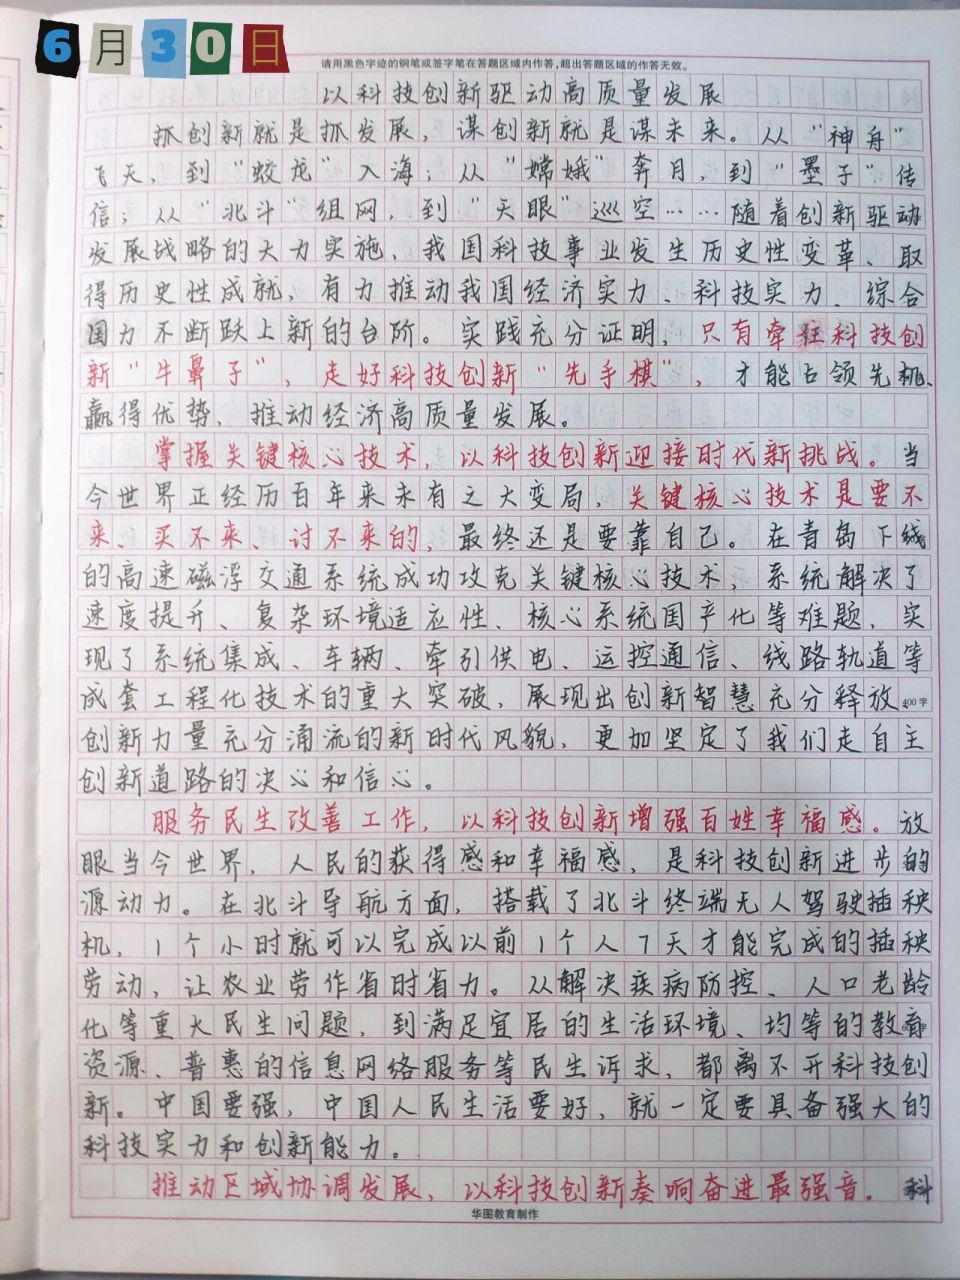 6月30日
请用黑色字迹的钢笔或签字笔在答题区域内作答,超出答题区域的作答无效。
以科技创新驱动高质量发展
抓创新就是抓发展，谋创新就是谋未来。从“神舟”
飞天，到“蛟龙”入海；从“嫦娥”奔月，到“墨子”传
信；从“北斗”组网，到“天眼”巡空……随着创新驱动
发展战略的大力实施，我国科技事业发生历史性变革、取
得历史性成就，有力推动我国经济实力、科技实力、综合
国力不断跃上新的台阶。实践充分证明，只有牵住科技创
新“牛鼻子”，走好科技创新“先手棋”，才能占领先机、
赢得优势，推动经济高质量发展。
掌握关键核心技术，以科技创新迎接时代新挑战。当
今世界正经历百年来未有之大变局，关键核心技术是要不
来、买不来、讨不来的，最终还是要靠自己。在青岛下线
的高速磁浮交通系统成功攻克关键核心技术，系统解决了
速度提升、复杂环境适应性、核心系统国产化等难题，实
现了系统集成、车辆、牵引供电、运控通信、线路轨道等
成套工程化技术的重大突破，展现出创新智慧充分释放400字
创新力量充分涌流的新时代风貌，更加坚定了我们走自主
创新道路的决心和信心。
服务民生改善工作，以科技创新增强百姓幸福感。放
眼当今世界，人民的获得感和幸福感，是科技创新进步的
源动力。在北斗导航方面，搭载了北斗终端无人驾驶插秧
机，1个小时就可以完成以前1个人7天才能完成的插秧
劳动，让农业劳作省时省力。从解决疾病防控、人口老龄
化等重大民生问题，到满足宜居的生活环境、均等的教育
资源、普惠的信息网络服务等民生诉求，都离不开科技创
新。中国要强，中国人民生活要好，就一定要具备强大的
科技实力和创新能力。
推动区域协调发展，以科技创新奏响奋进最强音。科
华图教育制作